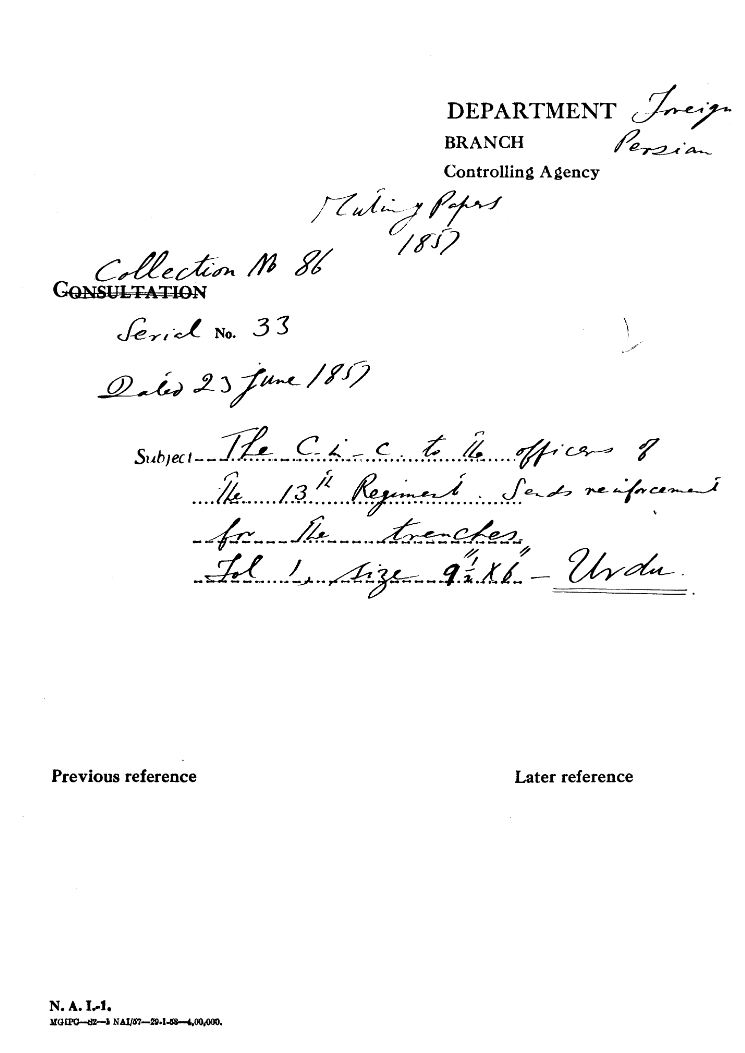 DEPARTMENT Foreign
BRANCH Persian
Controlling Agency
Mutiny Papers
1857
Collection No 86
CONSULTATION
Serial No. 33
Dated 23 June 1857
Subject The C-in-C. to the officers of
the 13th Regiment. Sends reinforcement
for the trenches.
Fol 1, size 9½" X 6" — Urdu.
Previous reference Later reference
N. A. I.-1.
MGIPC—S2—1 NAI/57—29-1-58—4,00,000.